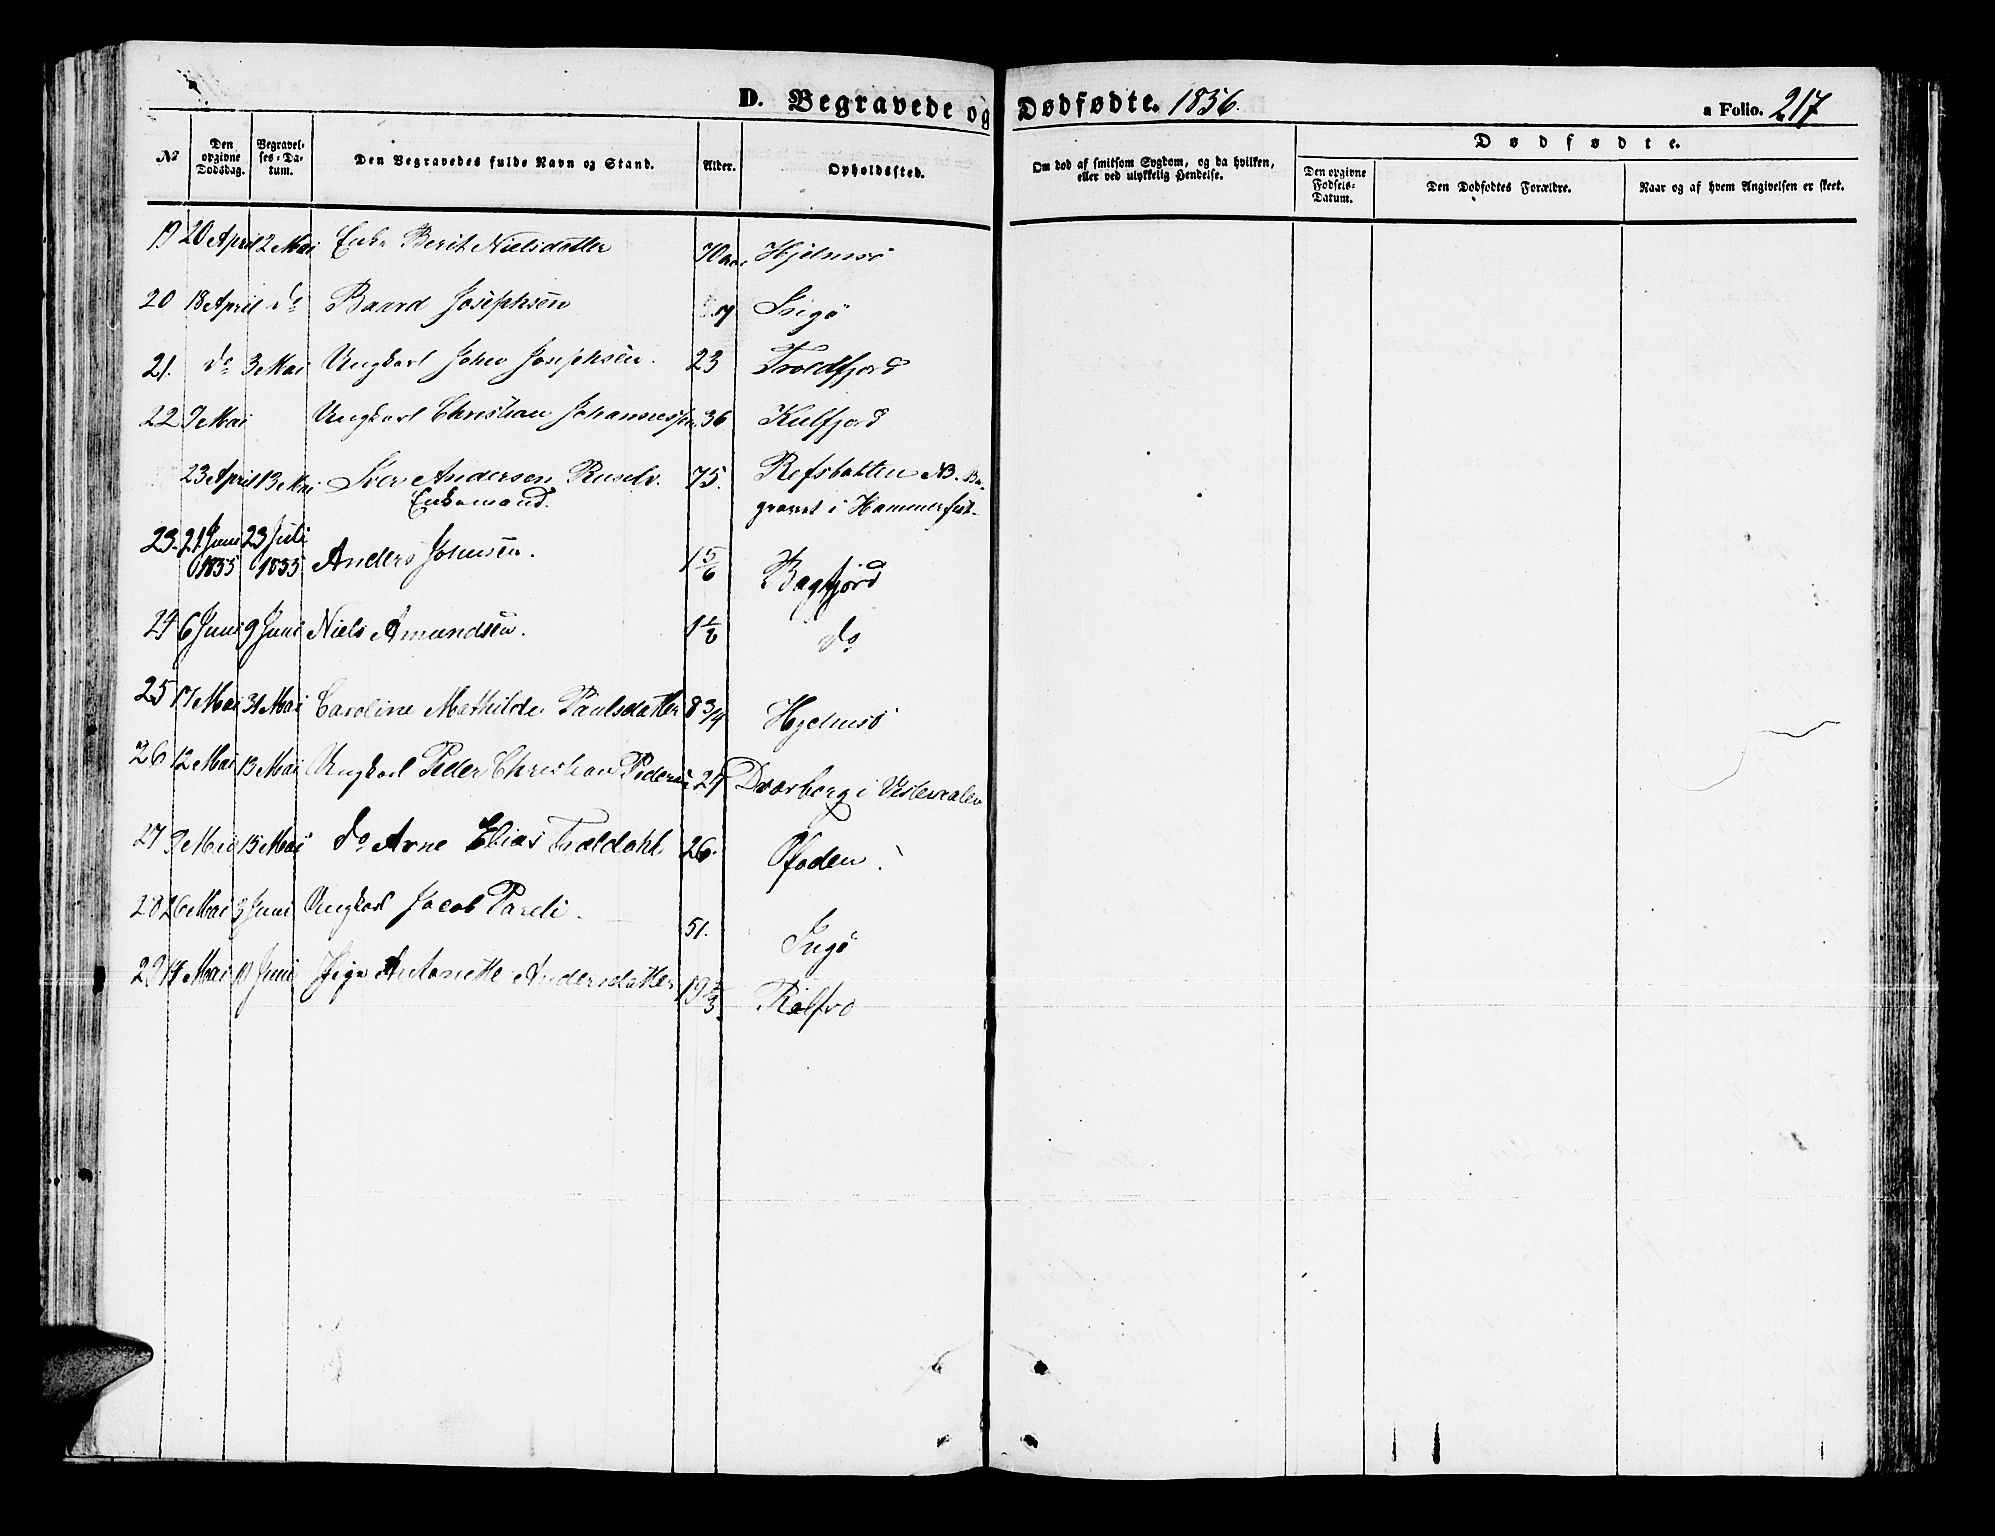 D. Begravede og Dødfødte. 1856.
a Folio. 217
No
Den opgivne Dødsdag.
Begravelses-Datum.
Den Begravedes fulde Navn og Stand.
Alder.
Opholdssted.
Om død af smitsom Sygdom, og da hvilken, eller ved ulykkelig Hendelse.
Dødfødte.
Den opgivne Fødsels-Datum.
Den Dødfødtes Forældre.
Naar og af hvem Angivelsen er skeet.
19 20 April 2 Mai Enke Berit Nielsdatter 70 aar Hjelmsö
20 18 April do Baard Josephsen Ingö
21. do 3 Mai Ungkarl John Josephsen. 23 Troldfjord
22 7 Mai Ungkarl Christian Johannessen 36 Kulfjord
23 April 13 Mai Iver Andersen Ruselv. 75. Refsbotten NB. Be-
Enkemand. gravet i Hammerfest.
23. 21 Juni 23 Juli
1855 1855 Anders Johnsen. 1 5/6 Bagfjord
24 6 Juni 9 Juni Niels Amundsen. do
25 17 Mai 31 Mai Caroline Mathilde Paulsdatter 8 3/4 Hjelmsö
26 12 Mai 13 Mai Ungkarl Peder Christian Pedersen 24 Dvarberg i Vesteraalen
27 9 Mai 15 Mai do Arne Elias Trældahl 26. Ofoden.
28 26 Mai 3 Juni Ungkarl Jacob Pareli. 51. Ingö
29 14 Mai Juni Pige Antonette Andersdatter 19 Rolfsö